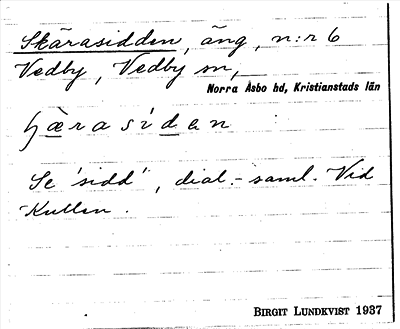 Skärasidden, äng, n:r 6
Vedby, Vedby sn,
Norra Åsbo hd, Kristianstads län
ɧæ̱rasi̍d̲ɘn
Se 'sidd', dial.-saml. Vid
Kullen.
BIRGIT LUNDKVIST 1937